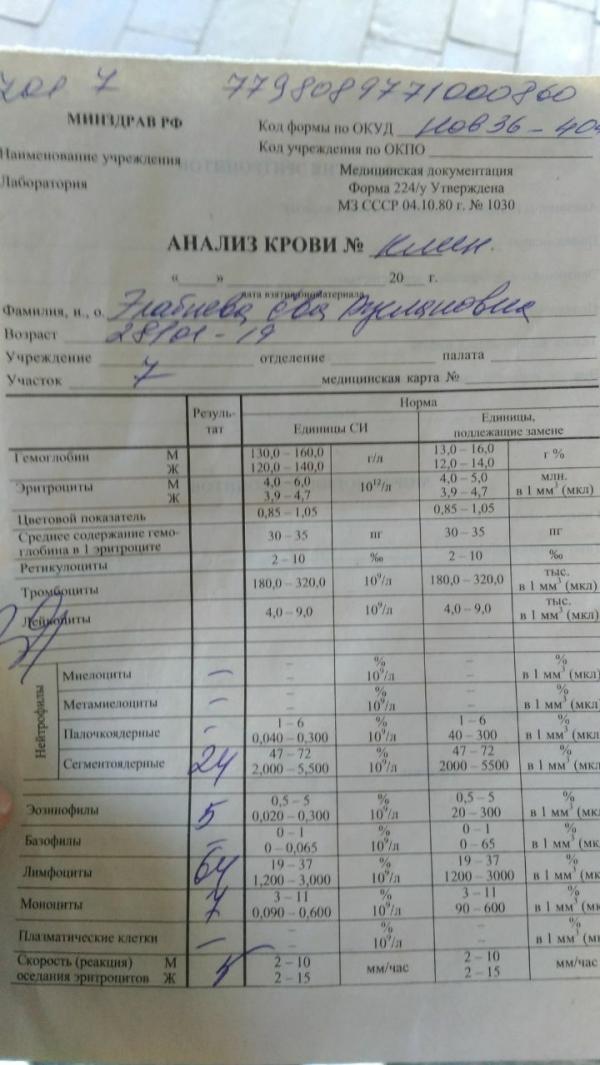 7798089771000860
МИНЗДРАВ РФ
Код формы по ОКУД
Код учреждения по ОКПО
Наименование учреждения
Лаборатория
Медицинская документация
Форма 224/у Утверждена
МЗ СССР 04.10.80 г. № 1030
АНАЛИЗ КРОВИ № клин.
« » 20 г.
дата взятия биоматериала
Фамилия, и., о. Руслановна
Возраст 28/01-19
Учреждение отделение палата
Участок 7 медицинская карта №
Резуль-тат Норма
Единицы СИ Единицы, подлежащие замене
Гемоглобин М 130,0 – 160,0 г/л 13,0 – 16,0 г %
Ж 120,0 – 140,0 12,0 – 14,0
Эритроциты М 4,0 – 6,0 10¹²/л 4,0 – 5,0 млн.
Ж 3,9 – 4,7 3,9 – 4,7 в 1 мм³ (мкл)
Цветовой показатель 0,85 – 1,05 0,85 – 1,05
Среднее содержание гемо-
глобина в 1 эритроците 30 – 35 пг 30 – 35 пг
Ретикулоциты 2 – 10 ‰ 2 – 10 ‰
Тромбоциты 180,0 – 320,0 10⁹/л 180,0 – 320,0 тыс. в 1 мм³ (мкл)
Лейкоциты 4,0 – 9,0 10⁹/л 4,0 – 9,0 тыс. в 1 мм³ (мкл)
Нейтрофилы
Миелоциты – – % – %
– 10⁹/л – в 1 мм³ (мк
Метамиелоциты – – % – %
– 10⁹/л – в 1 мм³ (мк
Палочкоядерные – 1 – 6 % 1 – 6 %
0,040 – 0,300 10⁹/л 40 – 300 в 1 мм³ (мк
Сегментоядерные 24 47 – 72 % 47 – 72 %
2,000 – 5,500 10⁹/л 2000 – 5500 в 1 мм³ (мк
Эозинофилы 5 0,5 – 5 % 0,5 – 5 %
0,020 – 0,300 10⁹/л 20 – 300 в 1 мм³ (мк
Базофилы – 0 – 1 % 0 – 1 %
0 – 0,065 10⁹/л 0 – 65 в 1 мм³ (мк
Лимфоциты 64 19 – 37 % 19 – 37 %
1,200 – 3,000 10⁹/л 1200 – 3000 в 1 мм³ (мк
Моноциты 7 3 – 11 % 3 – 11 %
0,090 – 0,600 10⁹/л 90 – 600 в 1 мм³ (мк
Плазматические клетки – – % – %
– 10⁹/л – в 1 мм³ (мк
Скорость (реакция) М 5 2 – 10 мм/час 2 – 10 мм/час
оседания эритроцитов Ж 2 – 15 2 – 15